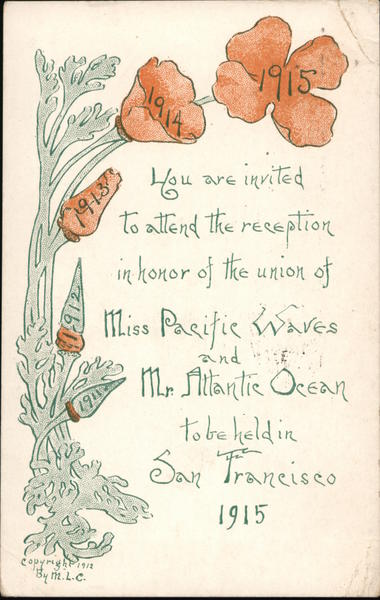 1915
1914
1913
1912
1911
You are invited
to attend the reception
in honor of the union of
Miss Pacific Waves
and
Mr. Atlantic Ocean
to be held in
San Francisco
1915
copyright 1912
By M.L.C.